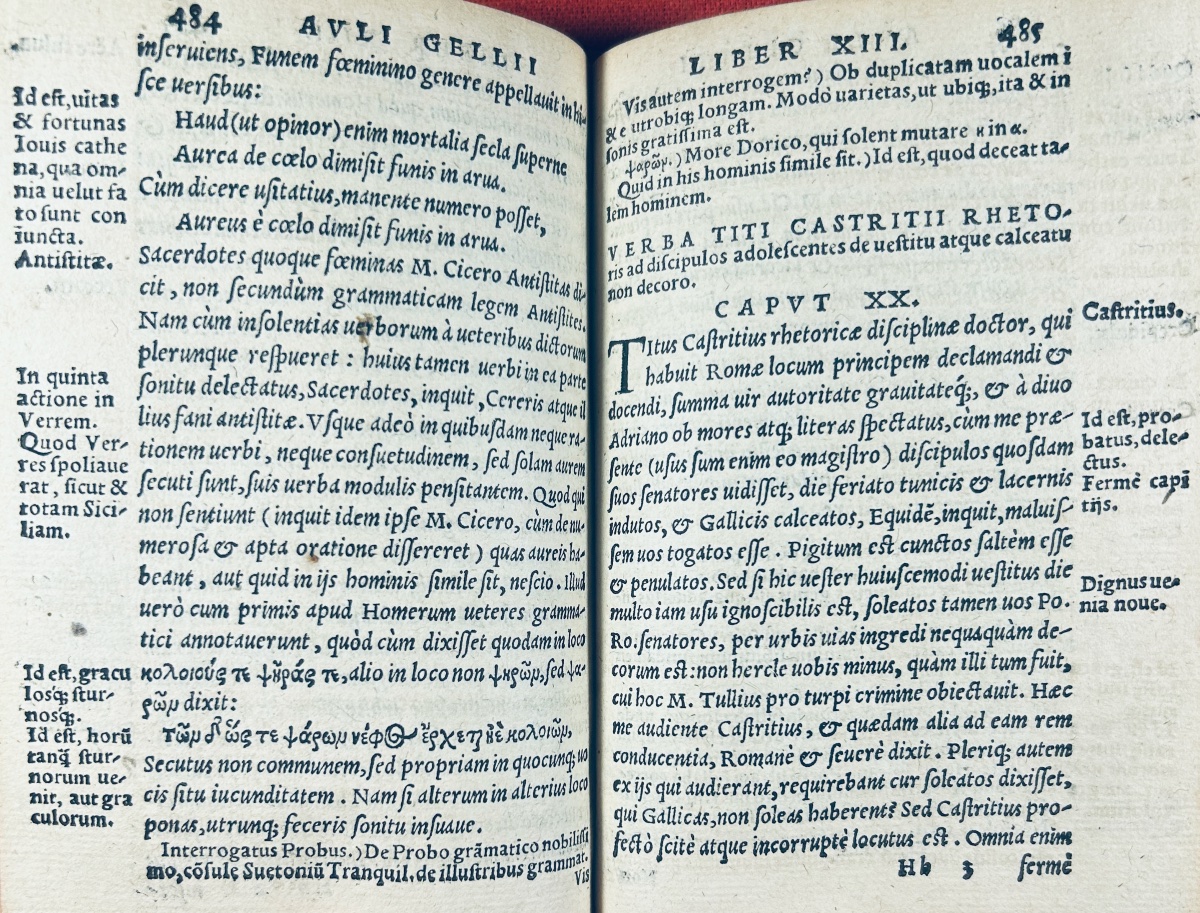 484 AVLI GELLII
inſeruiens, Funem fœminino genere appellauit in hi-
ſce uerſibus:
Haud (ut opinor) enim mortalia ſecla ſuperne
Aurea de cœlo dimiſit funis in arua.
Cùm dicere uſitatius, manente numero poſſet,
Aureus è cœlo dimiſit funis in arua.
Sacerdotes quoque fœminas M. Cicero Antiſtitas di-
cit, non ſecundùm grammaticam legem Antiſtites.
Nam cùm inſolentias uerborum à ueteribus dictorum
plerunque reſpueret: huius tamen uerbi in ea parte
ſonitu delectatus, Sacerdotes, inquit, Cereris atque il
lius fani antiſtitæ. Vſque adeò in quibuſdam neque ra-
tionem uerbi, neque conſuetudinem, ſed ſolam aurem
ſecuti ſunt, ſuis uerba modulis penſitantem. Quod qui
non ſentiunt (inquit idem ipſe M. Cicero, cùm de nu-
meroſa & apta oratione diſſereret) quas aureis ha-
beant, aut quid in ijs hominis ſimile ſit, neſcio. Illud
uerò cum primis apud Homerum ueteres gramma-
tici annotauerunt, quòd cùm dixiſſet quodam in loco
κολοιούς τε ψῆράς τε, alio in loco non ψηρῶμ, ſed ψα-
ρῶμ dixit:
Τῶμ δ' ὥς τε ψάρωμ νέφος ἔρχεται ἠὲ κολοιῶμ,
Secutus non communem, ſed propriam in quocunq; uo
cis ſitu iucunditatem. Nam ſi alterum in alterius loco
ponas, utrunq; feceris ſonitu inſuaue.
Interrogatus Probus.) De Probo grāmatico nobiliſsi
mo, cōſule Suetoniū Tranquil. de illuſtribus grammat.
Vis
Id eſt, uitas
& fortunas
Iouis cathe
na, qua om-
nia uelut fa
to ſunt con
iuncta.
Antiſtitæ.
In quinta
actione in
Verrem.
Quod Ver-
res ſpoliaue
rat, ſicut &
totam Sici-
liam.
Id eſt, gracu
loſq; ſtur-
noſq;.
Id eſt, horū
tanq̃ ſtur-
norum ue-
nit, aut gra
culorum.
LIBER XIII. 485
Vis autem interrogem?) Ob duplicatam uocalem i
& e utrobiq; longam. Modò uarietas, ut ubiq;, ita & in
ſonis gratiſsima eſt.
ψαρῶμ.) More Dorico, qui ſolent mutare η in α.
Quid in his hominis ſimile ſit.) Id eſt, quod deceat ta-
lem hominem.
VERBA TITI CASTRITII RHETO-
ris ad diſcipulos adoleſcentes de ueſtitu atque calceatu
non decoro.
CAPVT XX.
TItus Caſtritius rhetoricæ diſciplinæ doctor, qui
habuit Romæ locum principem declamandi &
docendi, ſumma uir autoritate grauitateq́;, & à diuo
Adriano ob mores atq; literas ſpectatus, cùm me præ-
ſente (uſus ſum enim eo magiſtro) diſcipulos quoſdam
ſuos ſenatores uidiſſet, die feriato tunicis & lacernis
indutos, & Gallicis calceatos, Equidē, inquit, maluiſ-
ſem uos togatos eſſe. Pigitum eſt cunctos ſaltèm eſſe
& penulatos. Sed ſi hic ueſter huiuſcemodi ueſtitus die
multo iam uſu ignoſcibilis eſt, ſoleatos tamen uos Po.
Ro. ſenatores, per urbis uias ingredi nequaquàm de-
corum eſt: non hercle uobis minus, quàm illi tum fuit,
cui hoc M. Tullius pro turpi crimine obiectauit. Hæc
me audiente Caſtritius, & quædam alia ad eam rem
conducentia, Romanè & ſeuerè dixit. Pleriq; autem
ex ijs qui audierant, requirebant cur ſoleatos dixiſſet,
qui Gallicas, non ſoleas haberent? Sed Caſtritius pro-
fectò ſcitè atque incorruptè locutus eſt. Omnia enim
Hh 3 fermè
Caſtritius.
Id eſt, pro-
batus, dele-
ctus.
Fermè capi
tijs.
Dignus ue-
nia noue.